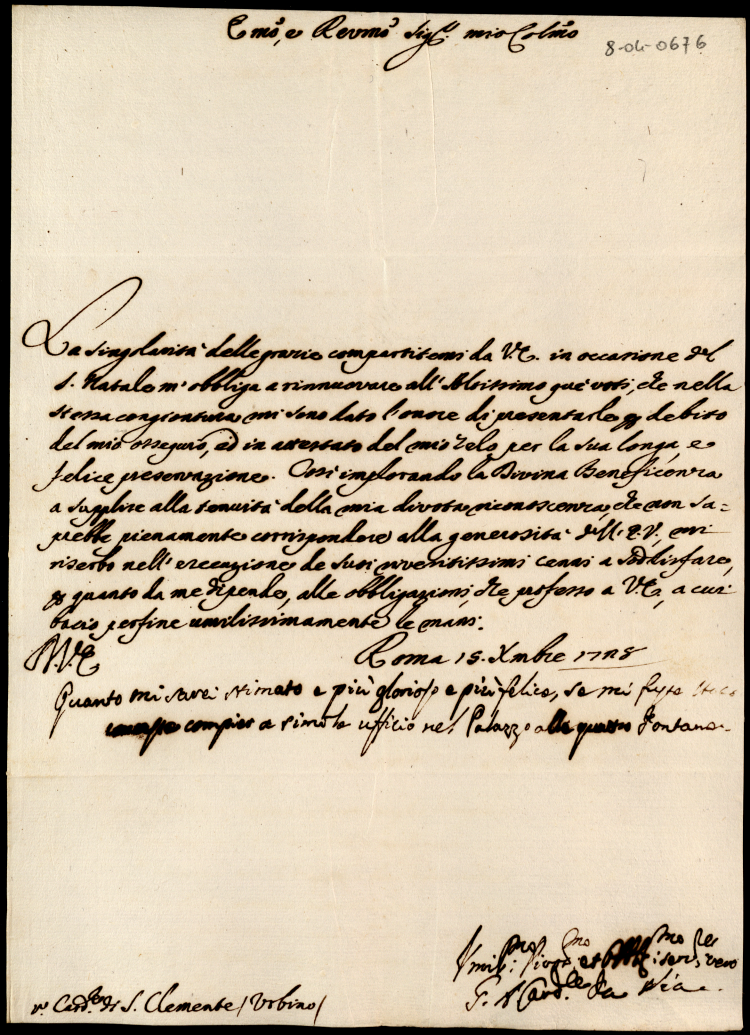 Emo, e Revmo Sigr. mio Colmo
8-04-0676
La singolarità delle grazie compartitemi da V.E. in occasione del
S. Natale m'obbliga a rinnuovare all'Altissimo que' voti, che nella
stessa congiontura mi sono dato l'onore di presentarle p debito
del mio ossequio, ed in attestato del mio zelo per la sua longa, e
felice preservazione. Così implorando la Divina Beneficenza
a supplire alla tenuità della mia divota riconoscenza, che non sa=
prebbe pienamente corrispondere alla generosità dell'E.V., mi
riserbo nell'esecuzione de suoi riveritissimi cenni a soddisfare,
p quanto da me dipende, alle obbligazioni, che professo a V.E., a cui
bacio perfine umilissimamente le mani.
D.V.E.
Roma 15. Xmbre
Quanto mi sarei stimato e più glorioso e più felice, se mi fusse
compier a simile ufficio nel Palazzo alle quattro Fontane.
Card. da Via.
Card. di S. Clemente / Urbino /